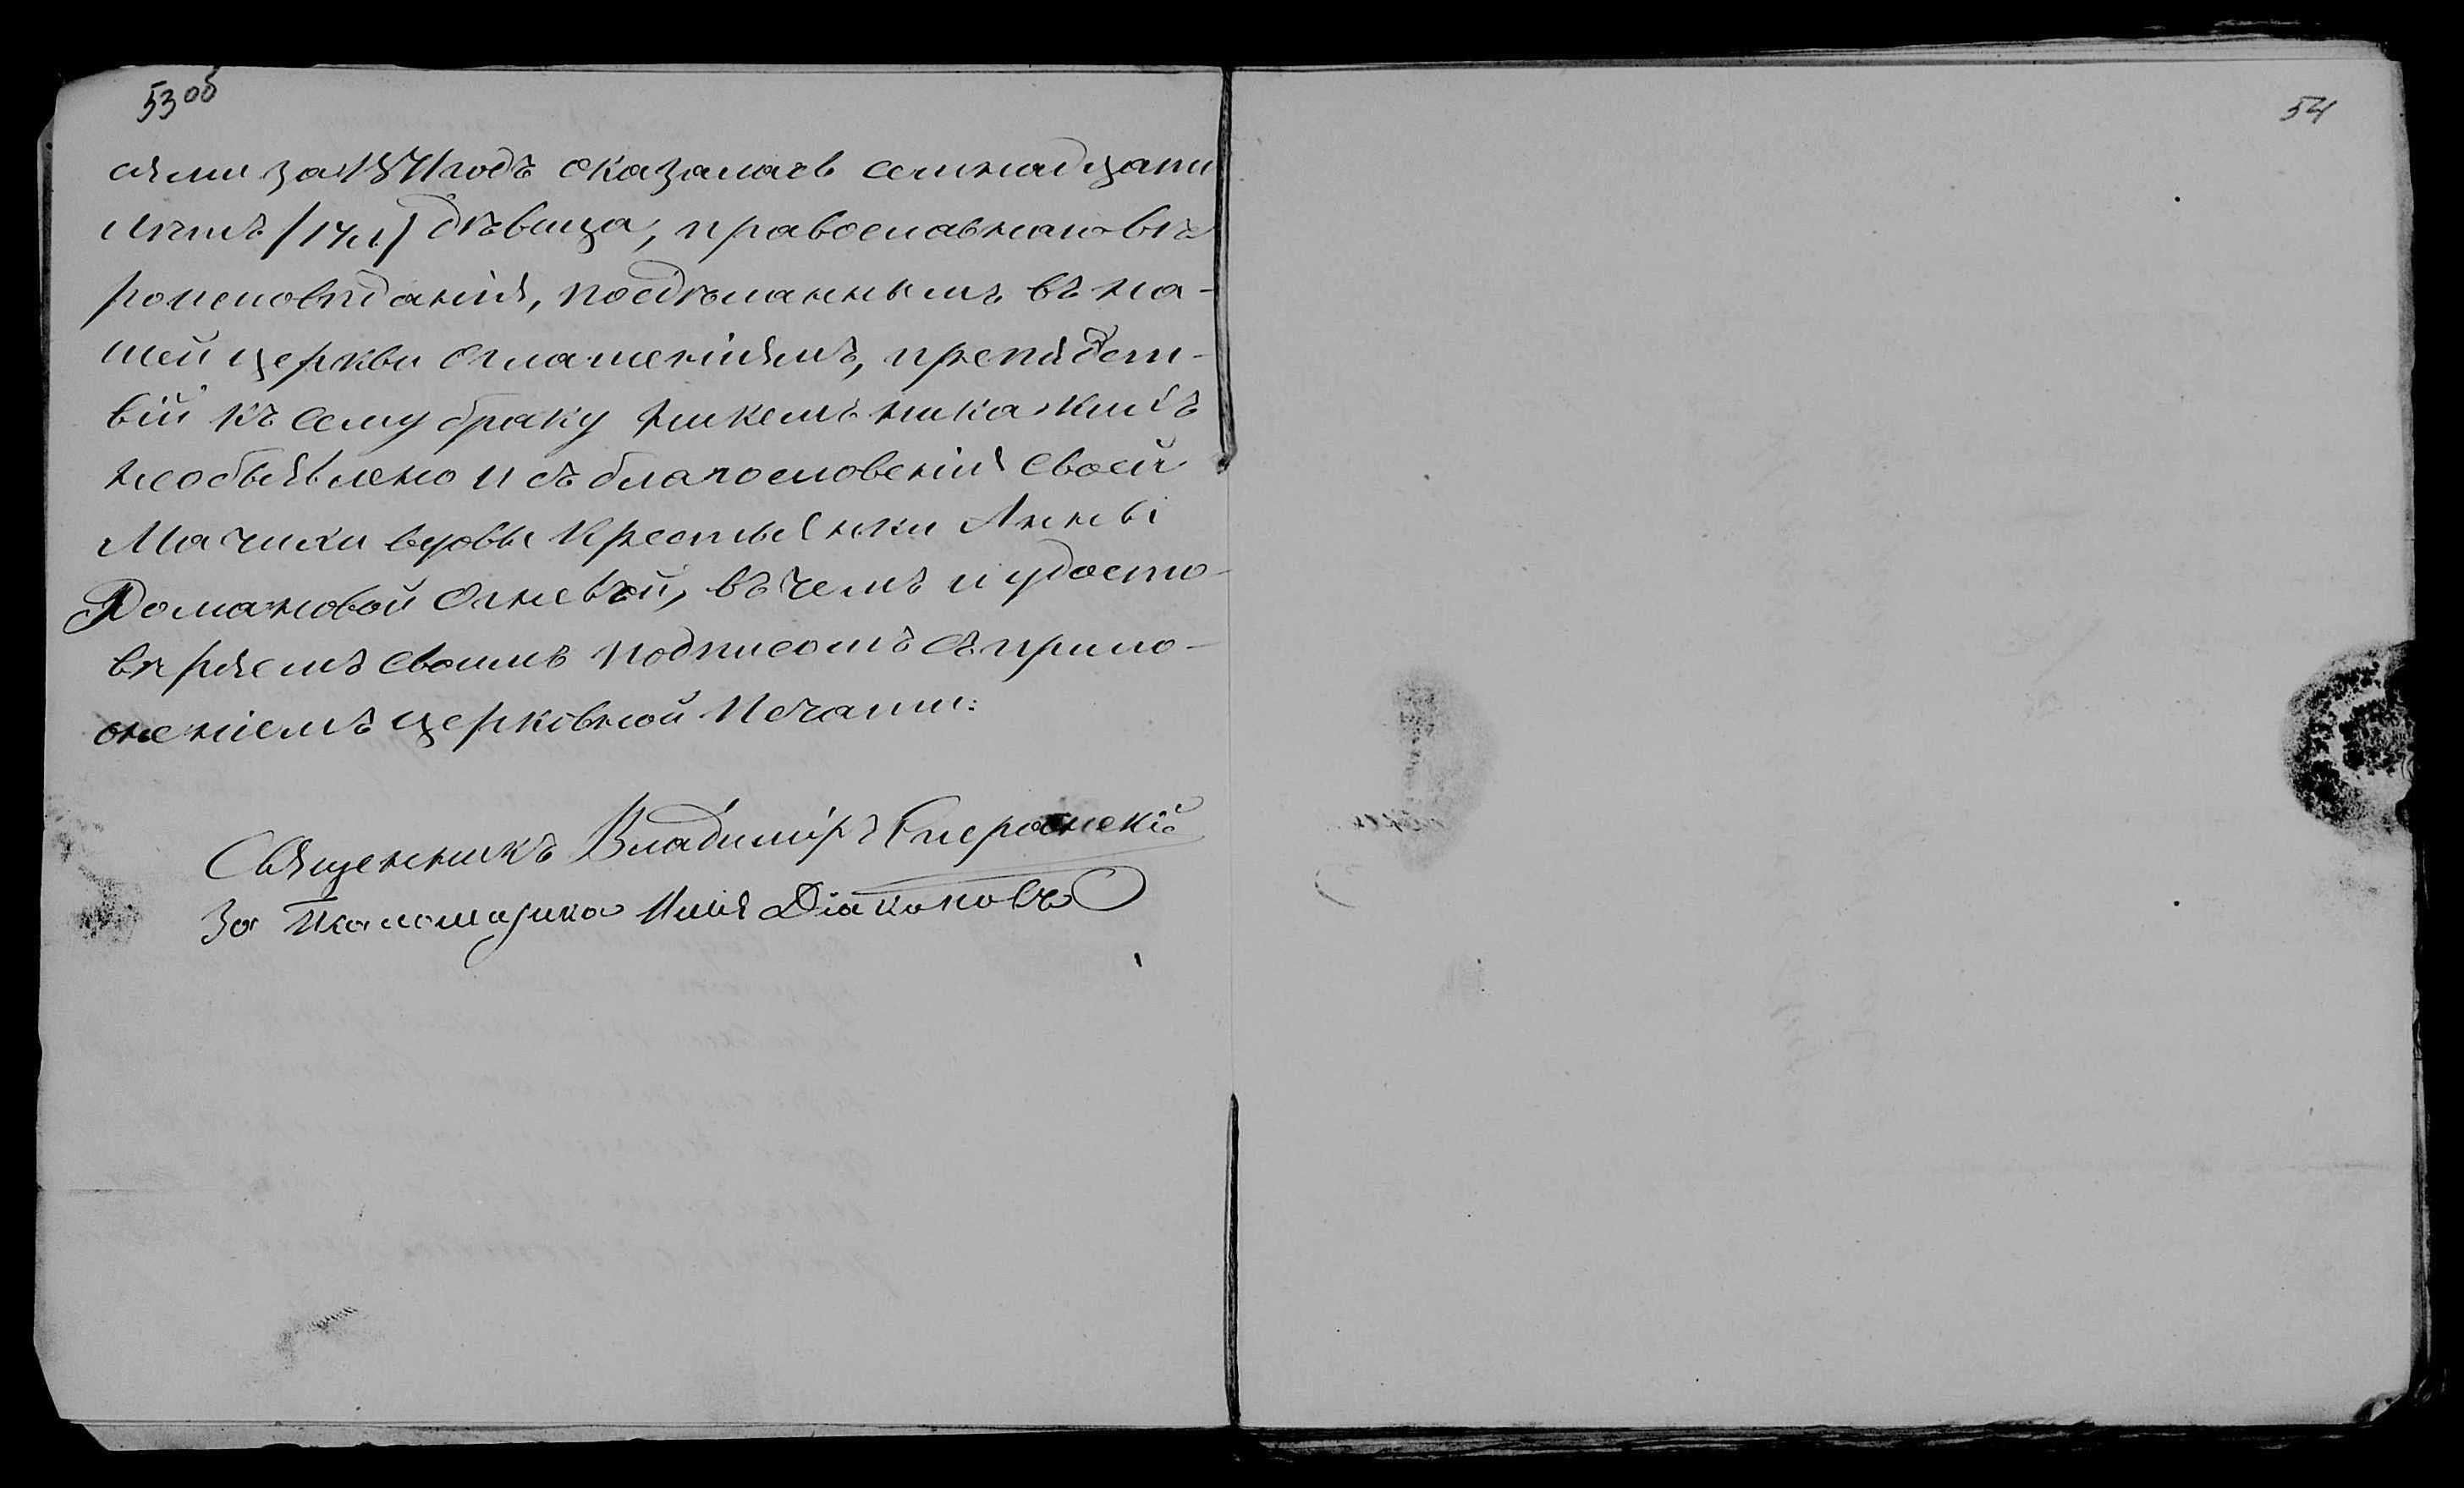 53 об
54
сями за 1871 годъ оказалась семнадцати
лѣтъ /17 л./ дѣвица, православнаго вѣ
роисповѣданія, поедѣланнымъ въ на-
шей церкви оглашеніямъ, препядст-
вій къ сему браку никемъ никакихъ
необъявлено и съ благословенія своей
Мачихи вдовы Крестьянки Анны
Романовой Огневой, въ чемъ и удосто-
вѣряемъ своимъ подписомъ съ прило-
женіемъ церковной Печати:
Священникъ Владиміръ
За Псаломщика Илія Діаконовъ